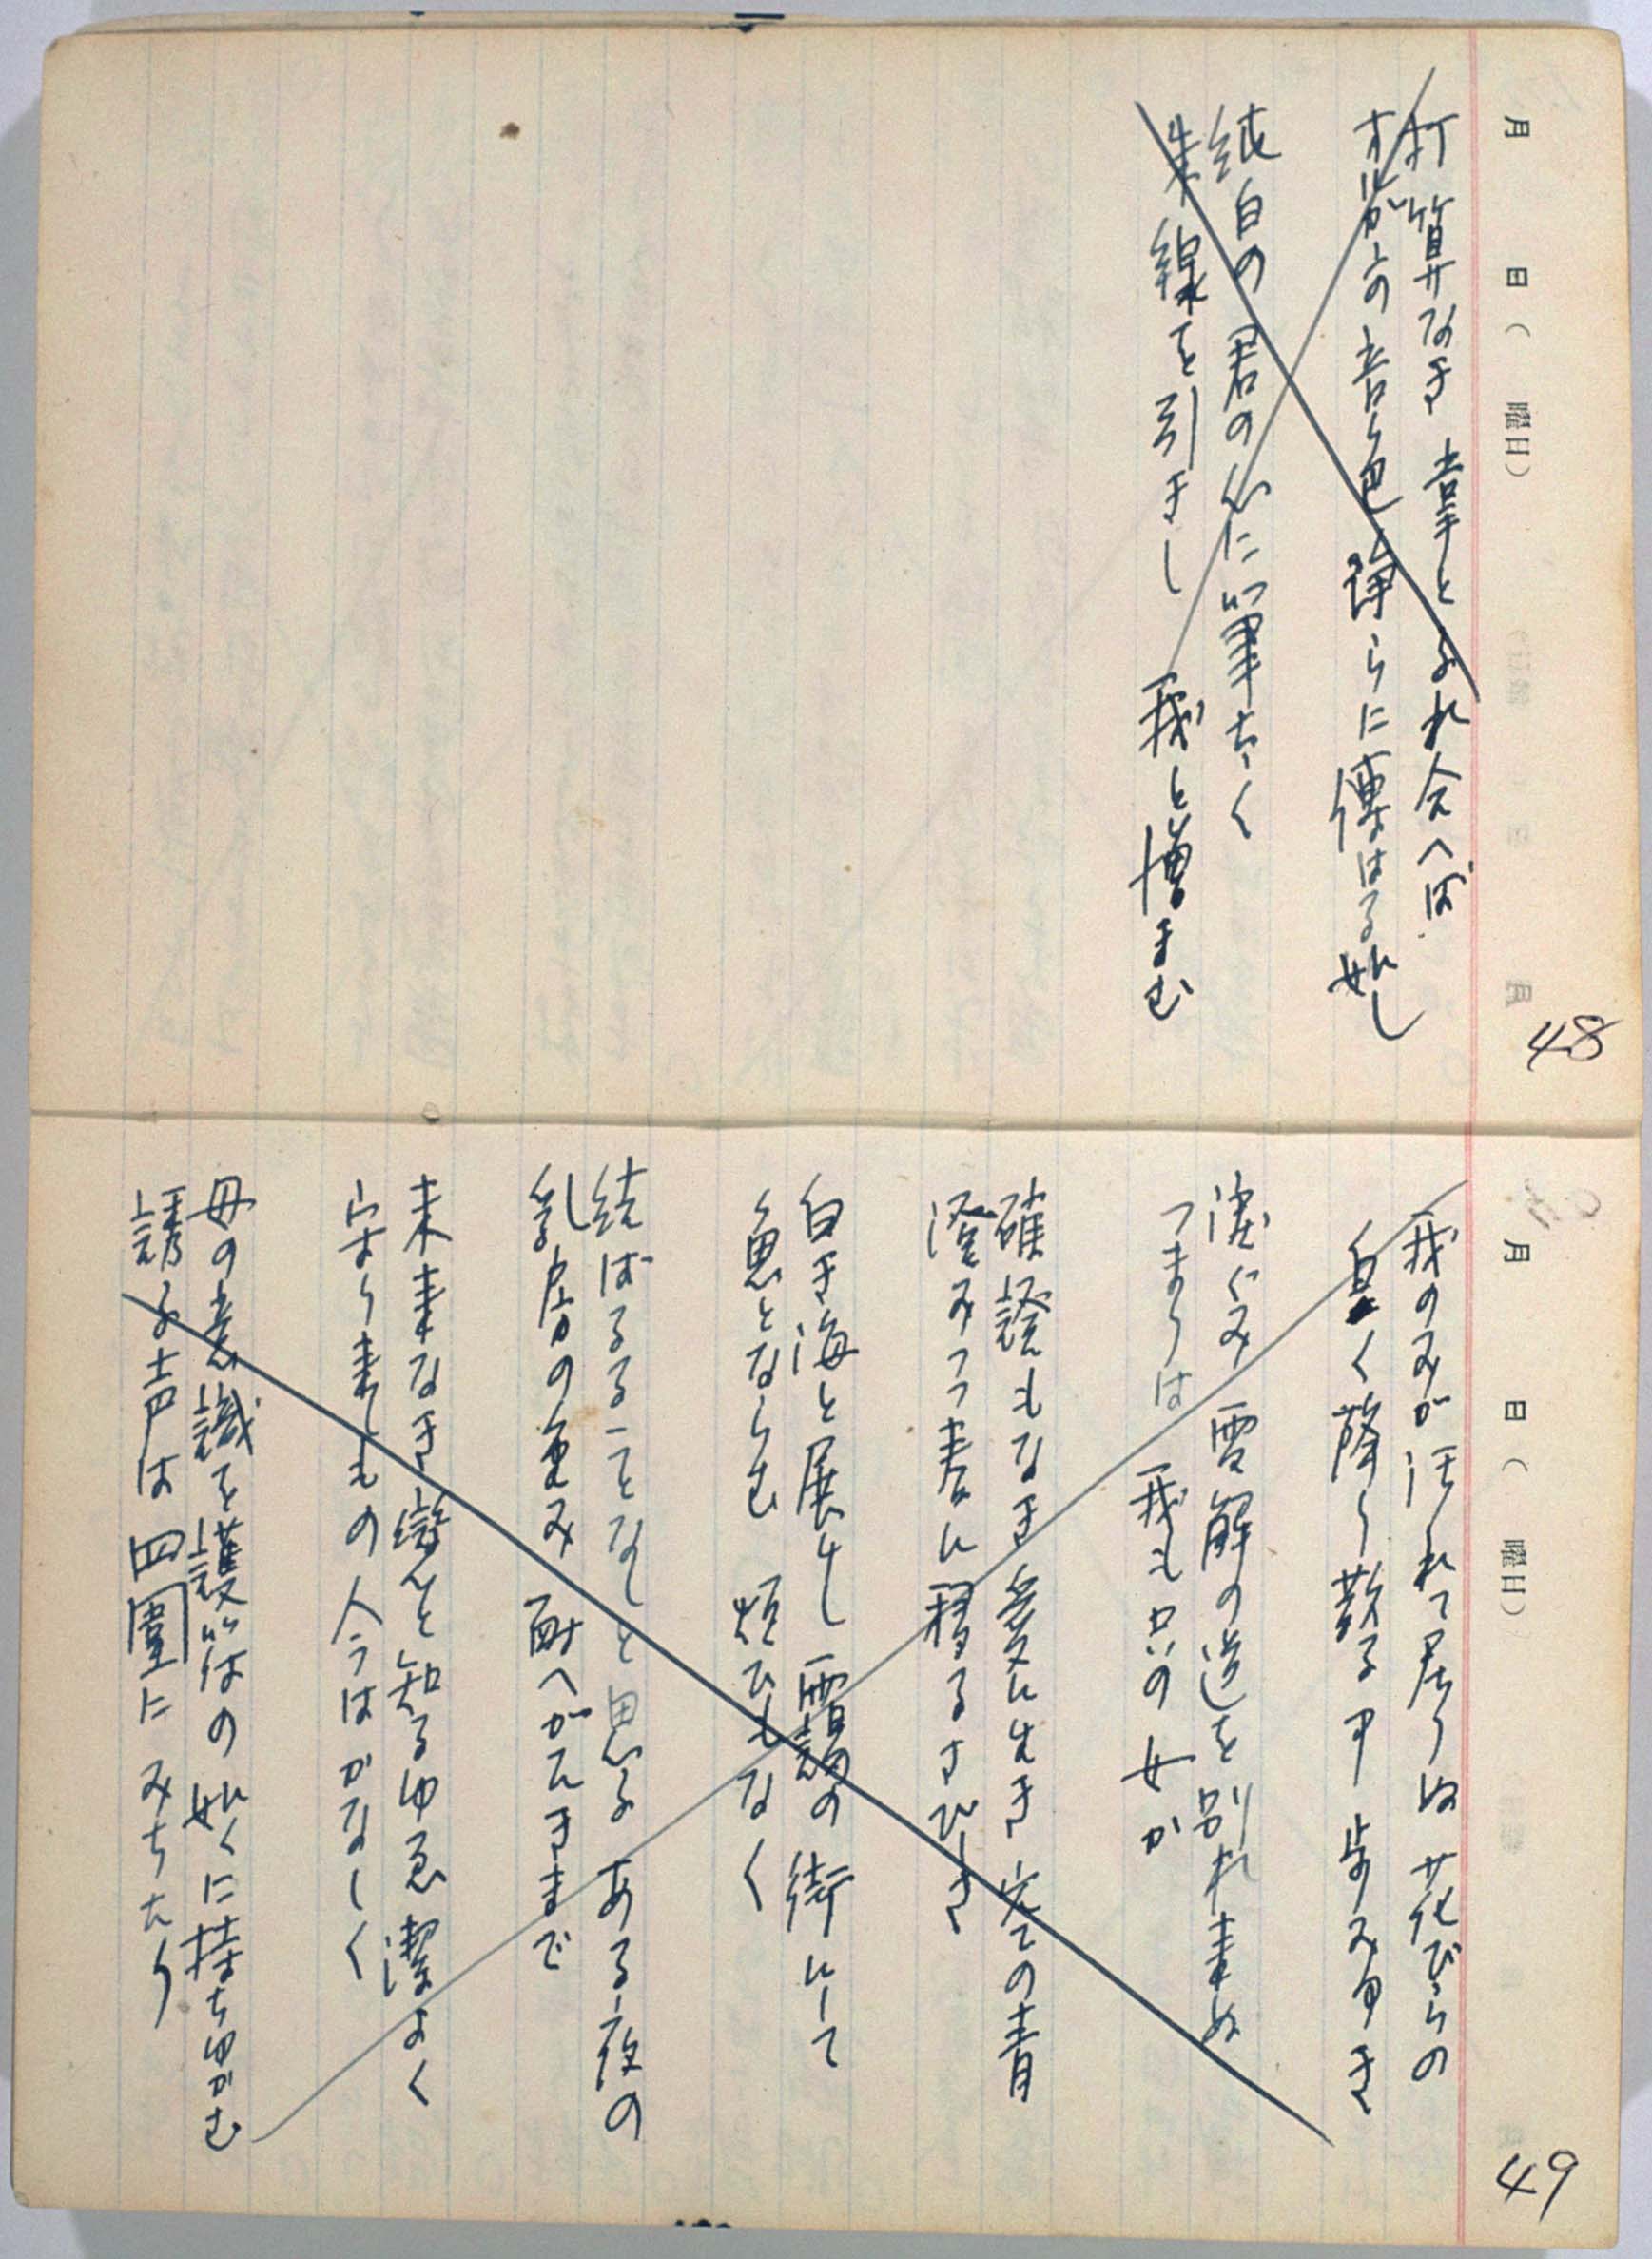 月 日( 曜日)
48
打算なき章とふれ会へば
オルガの音色 浄らに傳はる如し
純白の君の心に筆太く
朱線を引きし 我と憎まむ
月 日( 曜日)
49
我のみが汚れて居りぬ 花びらの
白く降り散る中 歩みゆき
涙ぐみ 雪解の道を別れ来ぬ
つまりは 我も只の女か
確證もなき愛に生き 定ての青
澄みつつ春に移るさびしさ
白き海と展けし 霧の街にして
魚とならむ 煩ひもなく
結ばるることなしと思ふ ある夜の
乳房の重み 耐へがたきまで
未来なき戀と知るゆゑ 潔よく
守り来しもの 今はかなしく
母の意識を護符の如くに持ちゆかむ
誘ふ声は 四圍に みちたり